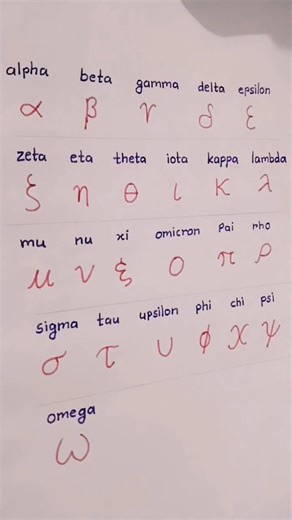 alpha beta gamma delta epsilon
α β γ δ ε
zeta eta theta iota kappa lambda
ξ η θ ι κ λ
mu nu xi omicron Pai rho
μ ν ξ ο π ρ
sigma tau upsilon phi chi psi
σ τ υ ϕ χ ψ
omega
ω